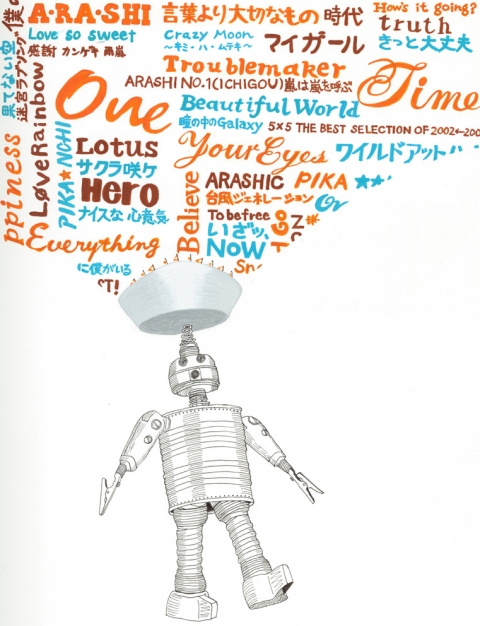 僕
A・RA・SHI
言葉より大切なもの
時代
How's it going?
Love so sweet
Crazy Moon
〜キミ・ハ・ムテキ〜
マイガール
truth
きっと大丈夫
感謝カンゲキ雨嵐
果てない空
迷宮ラブソング
Troublemaker
ARASHI NO.1(ICHIGOU)嵐は嵐を呼ぶ
Time
One
Beautiful World
瞳の中のGalaxy
5×5 THE BEST SELECTION OF 2002←200
LøveRainbow
PIKA★NCHI
Lotus
Your Eyes
ワイルドアット
サクラ咲ケ
Hero
Believe
ARASHIC
PIKA
台風ジェネレーション
ppiness
ナイスな心意気
To be free
いざッ、
NOW
Everything
に僕がいる